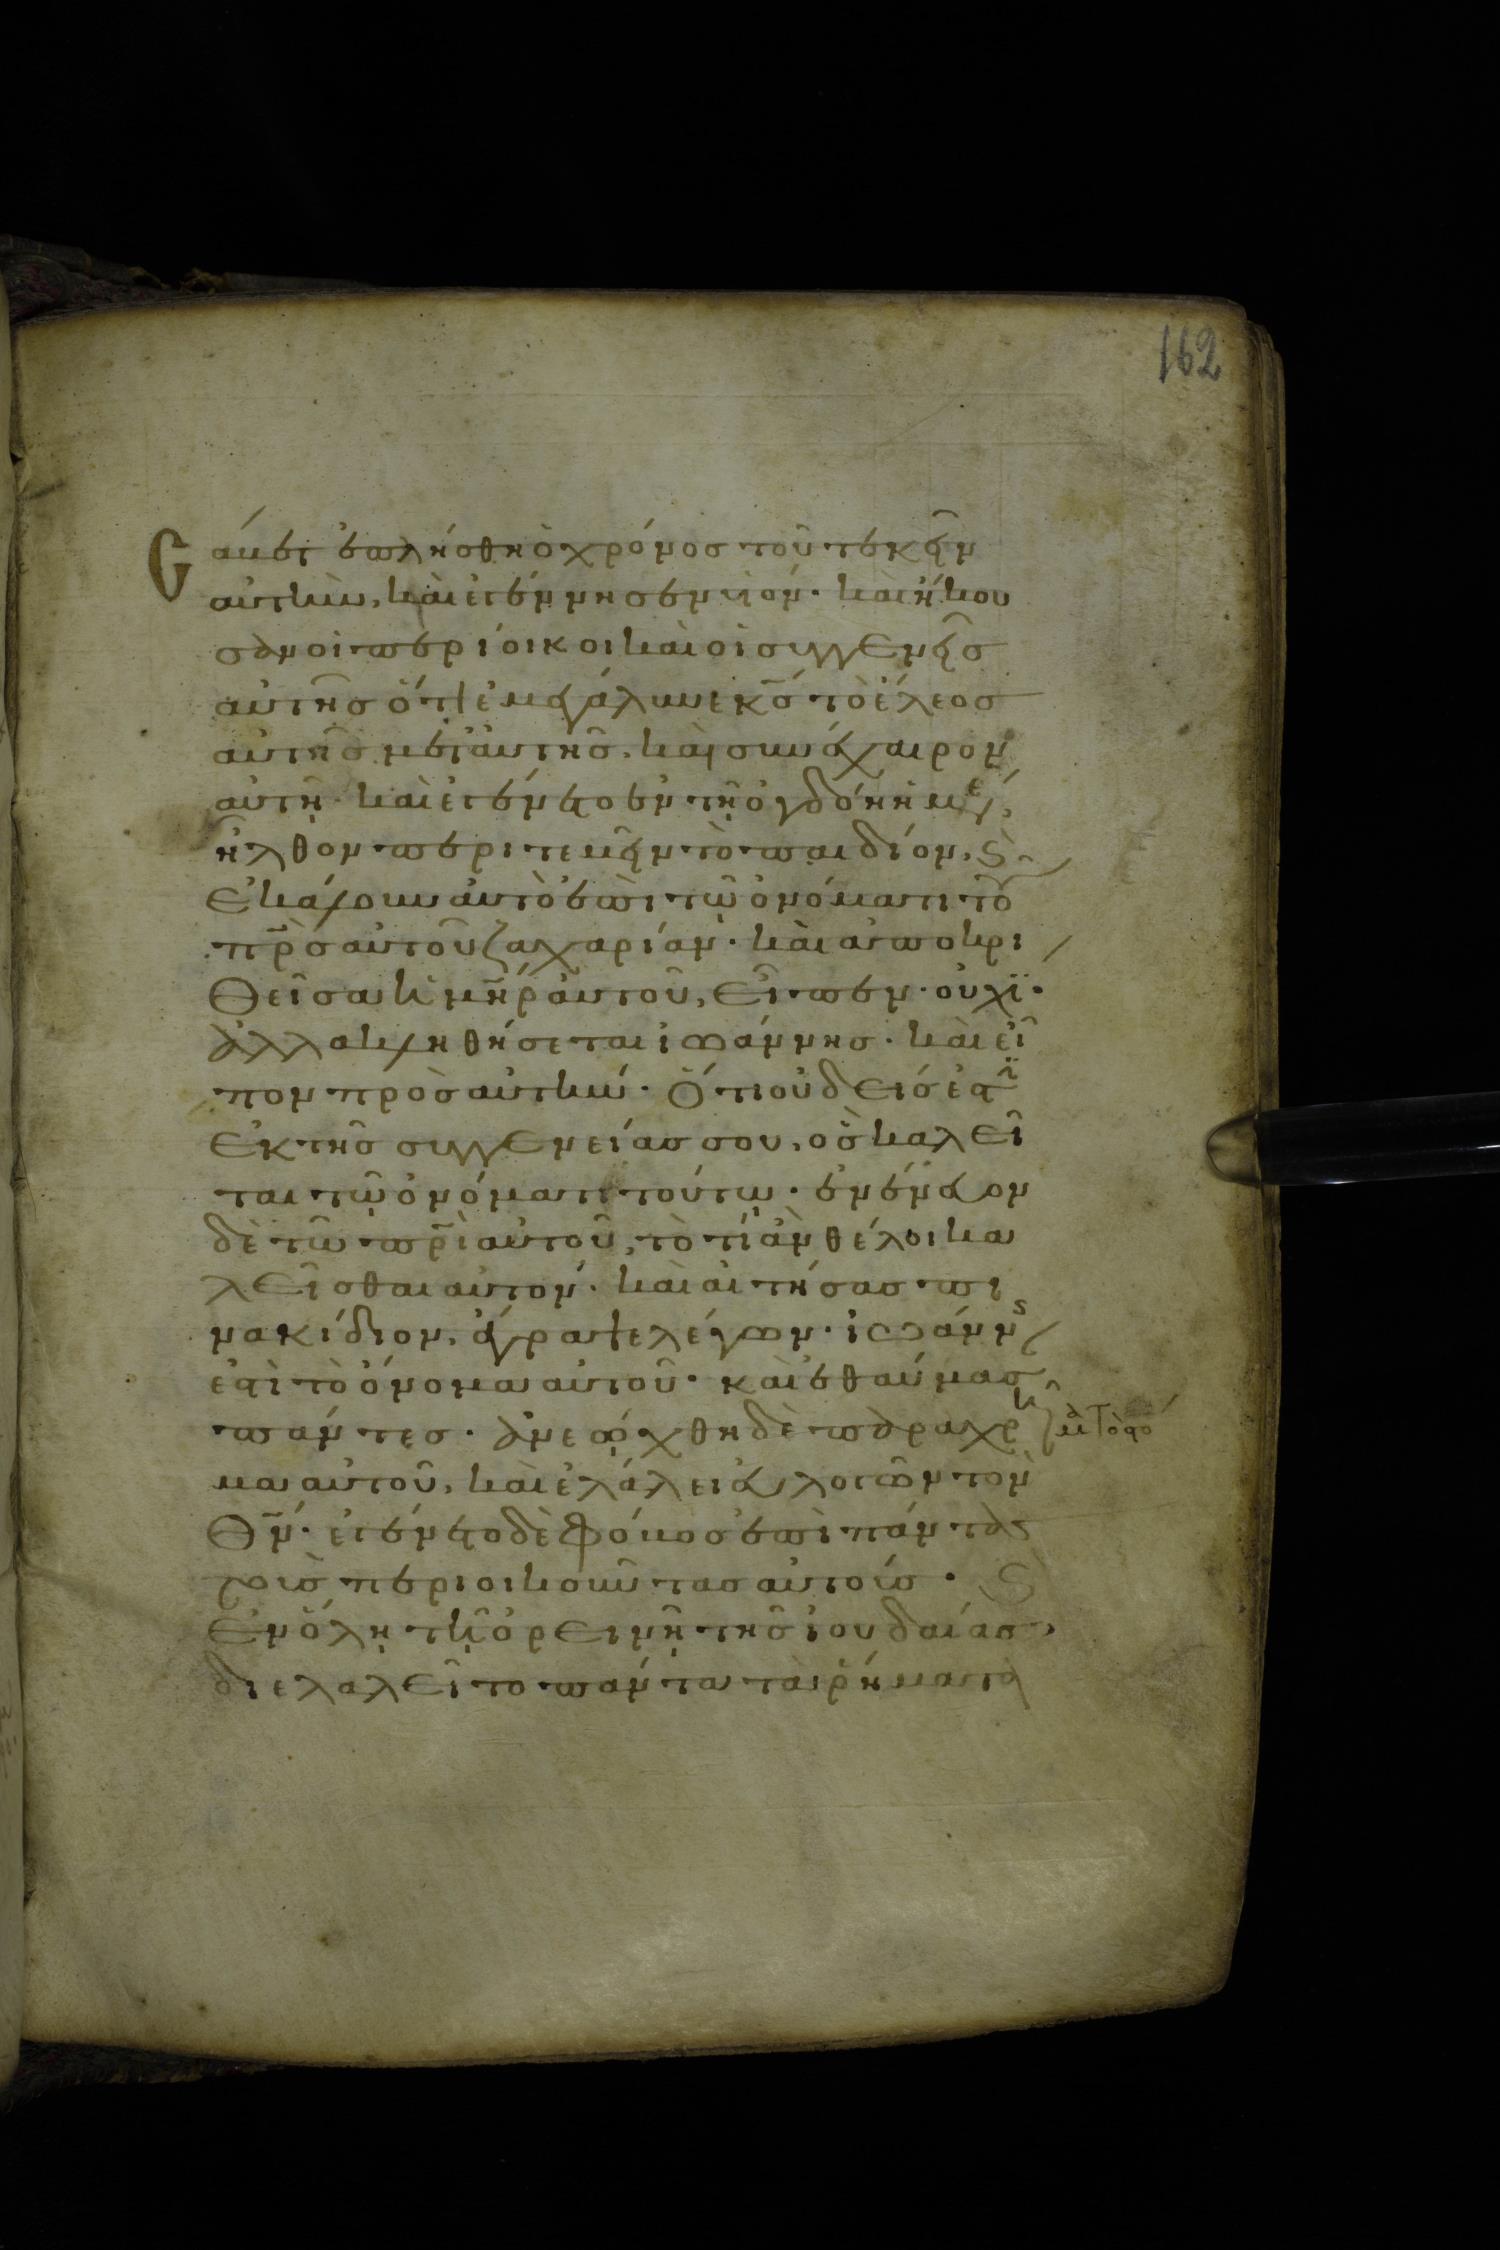 162
Ε
σάβετ ἐπλήσθη ὁ χρόνος τοῦ τεκεῖν
αὐτὴν, καὶ ἐγέννησεν υἱόν· καὶ ἤκου
σαν οἱ περίοικοι καὶ οἱ συγγενεῖς
αὐτῆς ὅτι ἐμεγάλυνε κ̅ς̅ τὸ ἔλεος
αὐτοῦ μετ' αὐτῆς, καὶ συνέχαιρον
αὐτῇ· καὶ ἐγένετο ἐν τῇ ὀγδόῃ ἡμέ,
ἦλθον περιτεμεῖν τὸ παιδίον, ϗ
ἐκάλουν αὐτὸ ἐπὶ τῷ ὀνόματι το͂
π̅ρ̅ς αὐτοῦ ζαχαρίαν· καὶ ἀποκρι
θεῖσα ἡ μ̅η̅ρ αὐτοῦ, εἶπεν· οὐχί·
ἀλλὰ κληθήσεται ἰωάννης· καὶ εἶ
πον πρὸς αὐτήν· ὅτι οὐδεὶς ἐστὶ̈
ἐκ τῆς συγγενείας σου, ὃς καλεῖ
ται τῷ ὀνόματι τούτῳ· ἐνένευον
δὲ τῷ π̅ρ̅ὶ αὐτοῦ, τὸ τί ἂν θέλοι κα
λεῖσθαι αὐτόν· καὶ αἰτήσας πι
νακίδιον, ἔγραψε λέγων· ἰωάννς
ἐστὶ τὸ ὄνομα αὐτοῦ· καὶ ἐθαύμασ
πάντες· ἀνεῴχθη δὲ παραχρῆμα τὸ στό
μα αὐτοῦ, καὶ ἐλάλει εὐλογῶν τὸν
θ̅ν̅· ἐγένετο δὲ φόβος ἐπὶ πάντας
τοὺς περιοικοῦντας αὐτούς· ϗ
ἐν ὅλῃ τῇ ὀρεινῇ τῆς ἰουδαίας,
διελαλεῖτο πάντα τὰ ῥήματα